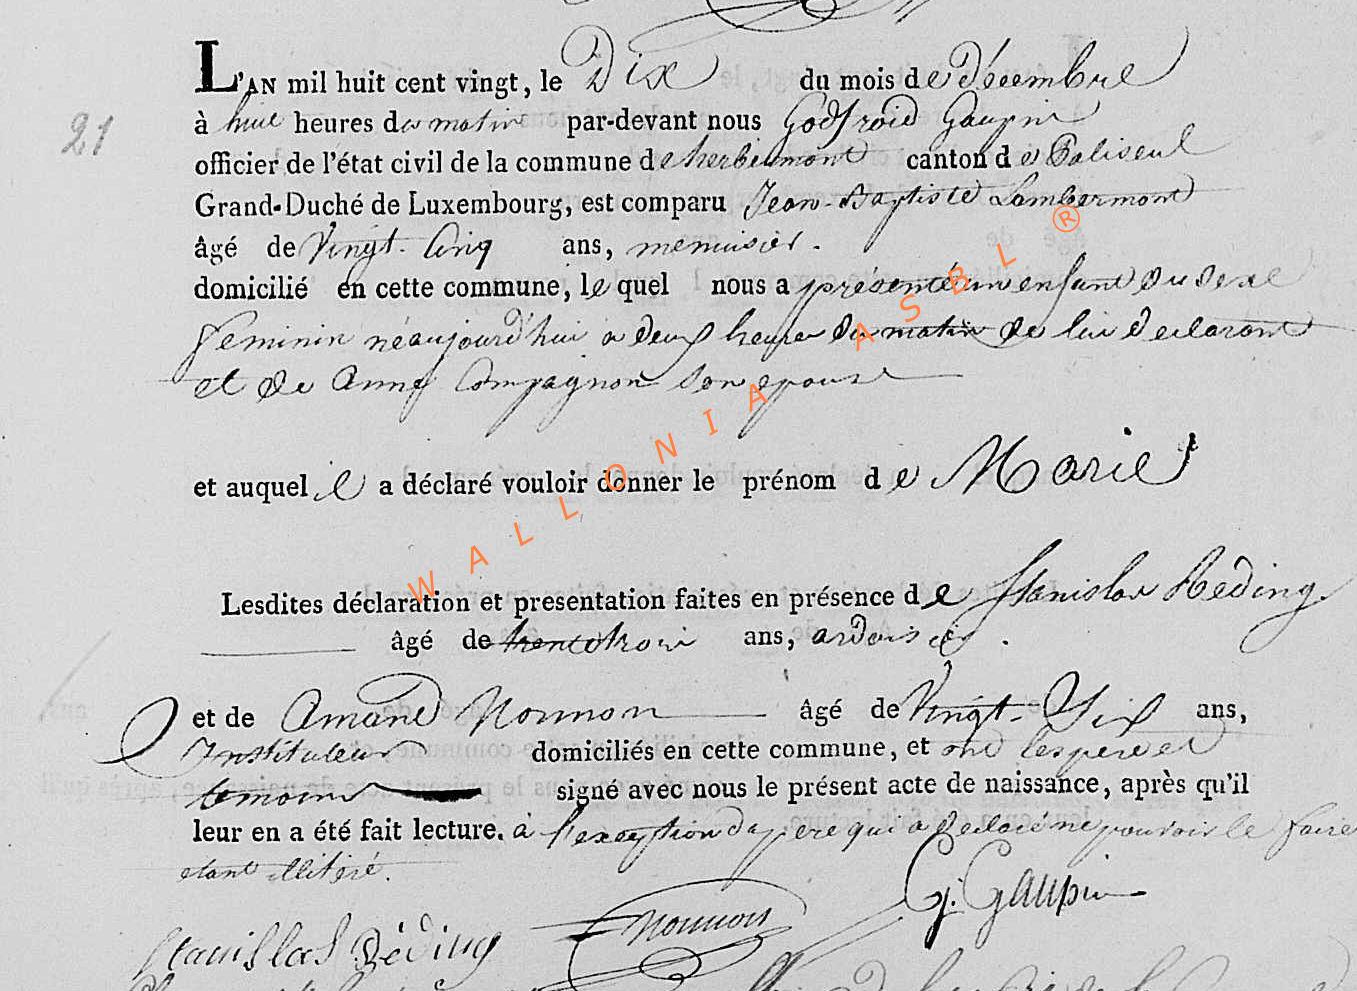 L'AN mil huit cent vingt, le Dix du mois de Décembre
21
à huit heures du matin par-devant nous Godfroid Gaupin
officier de l'état civil de la commune de herbeumont canton de Paliseul
Grand-Duché de Luxembourg, est comparu Jean-Baptiste Lambermont
âgé de Vingt-Cinq ans, menuisier.
domicilié en cette commune, le quel nous a présenté un enfant du sexe
feminin né aujourd'hui a deux heures du matin de lui declarant
et de Anne Compagnon son epouse
et auquel il a déclaré vouloir donner le prénom de Marie
Lesdites déclaration et presentation faites en présence de Stanislas Reding
âgé de trente trois ans, ardoisier.
et de Amand Nonnon âgé de Vingt-Six ans,
Instituteur domiciliés en cette commune, et ont les pere et
temoins signé avec nous le présent acte de naissance, après qu'il
leur en a été fait lecture. à l'exception du pere qui a declaré ne pouvoir le faire
etant illitéré.
G. Gaupin
Nonnon
Stanislas Réding
WALLONIA ASBL ®